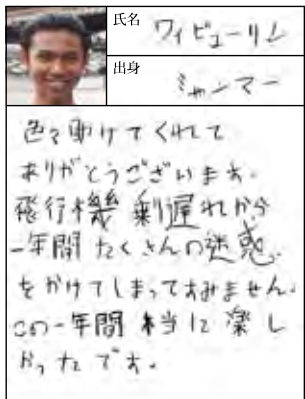 氏名 ワイ ビューリン
出身 ミャンマー
色々助けてくれて
ありがとうございます。
飛行機 乗り遅れから
一年間 たくさんの迷惑
をかけてしまってすみません。
この一年間 本当に 楽し
かったです。